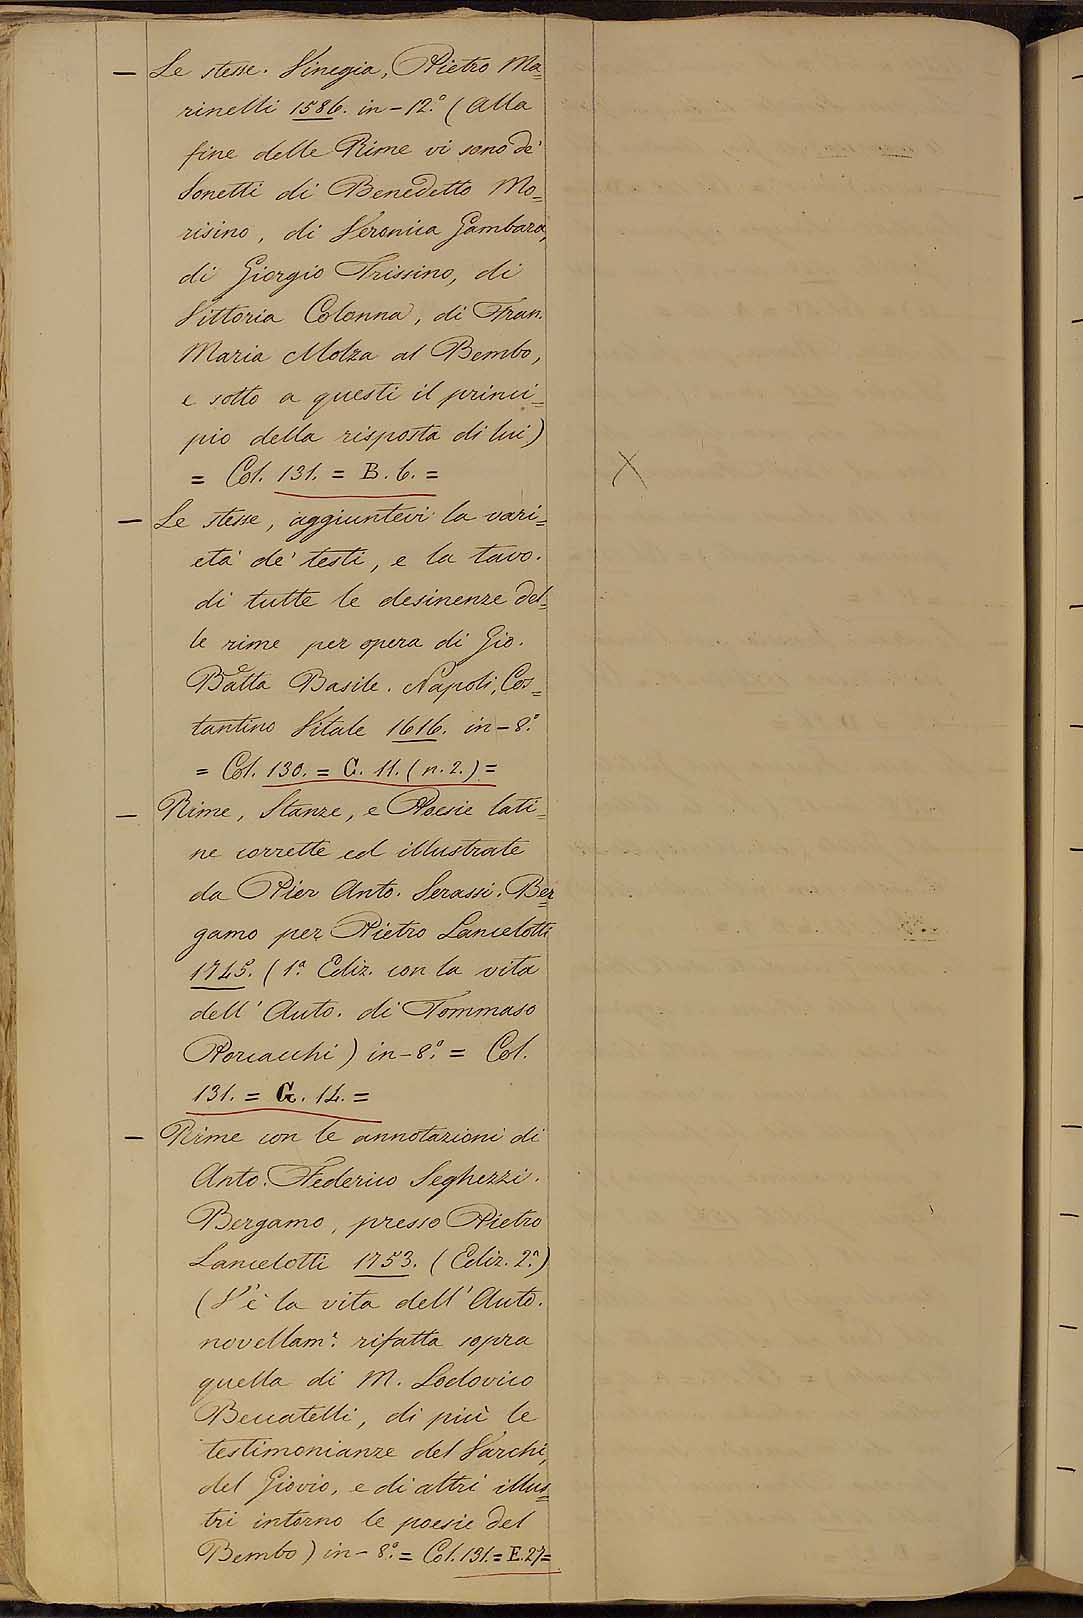 — Le stesse. Vinegia, Pietro Ma=
rinelli 1586. in-12.° (Alla
fine delle Rime vi sono de'
Sonetti di Benedetto Mo=
risino, di Veronica Gambara,
di Giorgio Trissino, di
Vittoria Colonna, di Fran.
Maria Molza al Bembo,
e sotto a questi il princi=
pio della risposta di lui)
= Col. 131. = B. 6. =
X
— Le stesse, aggiuntevi la vari=
età de' testi, e la tavo.
di tutte le desinenze del=
le rime per opera di Gio.
Batta Basile. Napoli, Cos=
tantino Vitale 1616. in-8.°
= Col. 130. = G. 11. (n. 2.) =
— Rime, Stanze, e Poesie lati=
ne corrette ed illustrate
da Pier Anto. Serassi. Ber=
gamo per Pietro Lancelotti
1745. (1.a Ediz. con la vita
dell' Auto. di Tommaso
Porcacchi) in-8.° = Col.
131. = G. 14. =
— Rime con le annotazioni di
Anto. Federico Seghezzi.
Bergamo, presso Pietro
Lancelotti 1753. (Ediz. 2.a)
(V'è la vita dell' Auto.
novellam.e rifatta sopra
quella di M. Lodovico
Beccatelli, di più le
testimonianze del Varchi,
del Giovio, e di altri illus=
tri intorno le poesie del
Bembo) in-8.° = Col. 131. = E. 27=